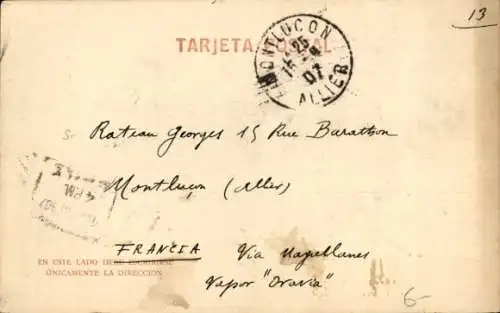 13
TARJETA POSTAL
MONTLUCON
15 25
07
ALLIER
Rateau Georges 15 Rue Barathon
Montluçon (Allier)
4 PM
FRANCIA Via Magellanes
Vapor "Oravia"
EN ESTE LADO DEBE ESCRIBIRSE
ÚNICAMENTE LA DIRECCION
6-